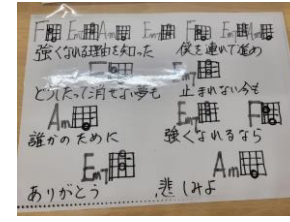 F Em7 Am Em7 F Em7 Am
強くなれる理由を知った 僕を連れて進め
F Em7
どうしたって!消せない夢も 止まれない今も
Am Em7 F
誰かのために 強くなれるなら
Em7 Am
ありがとう 悲しみよ